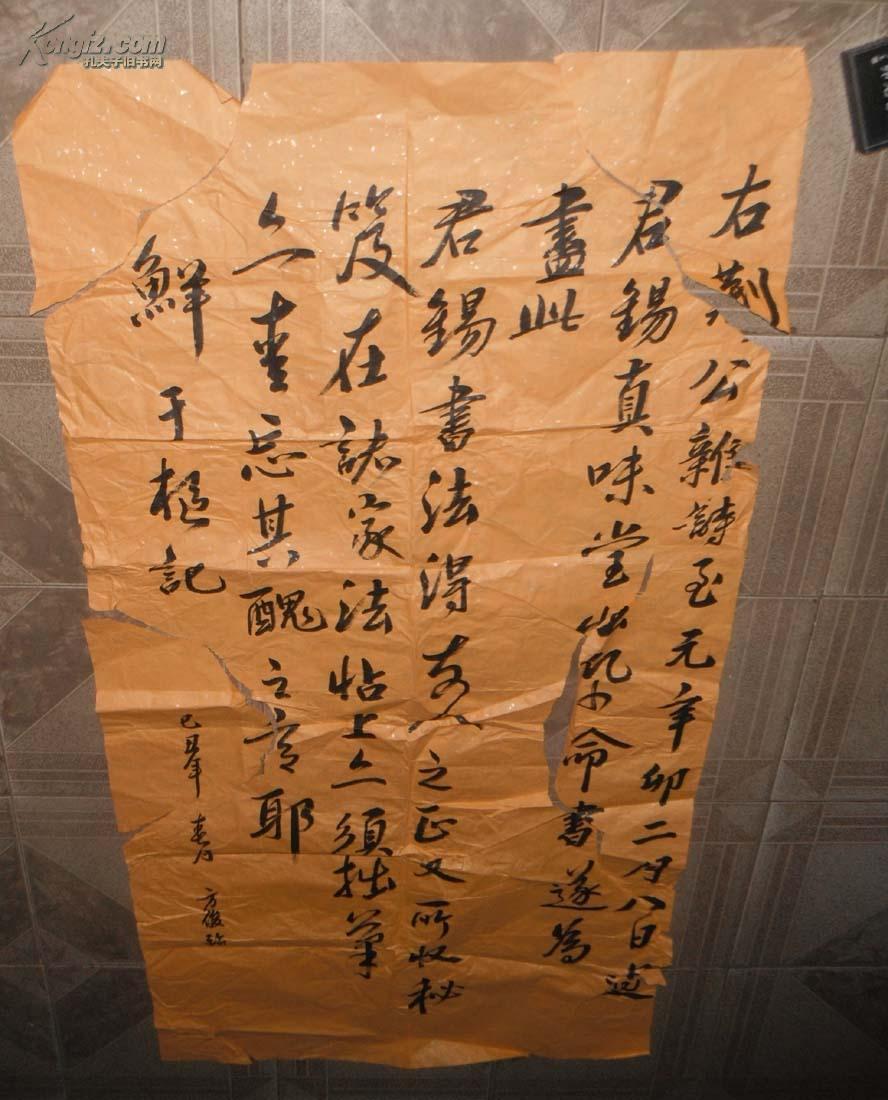 Kongfz.com
孔夫子旧书网
右荆公雜詩至元辛卯二月八日過
君錫真味堂出帋命書遂為
盡此
君錫書法得古人之正又所收秘
笈在諸家法帖上亦須拙筆
亦愛忘其醜之意耶
鮮于樞記
己丑年 春月 方俊